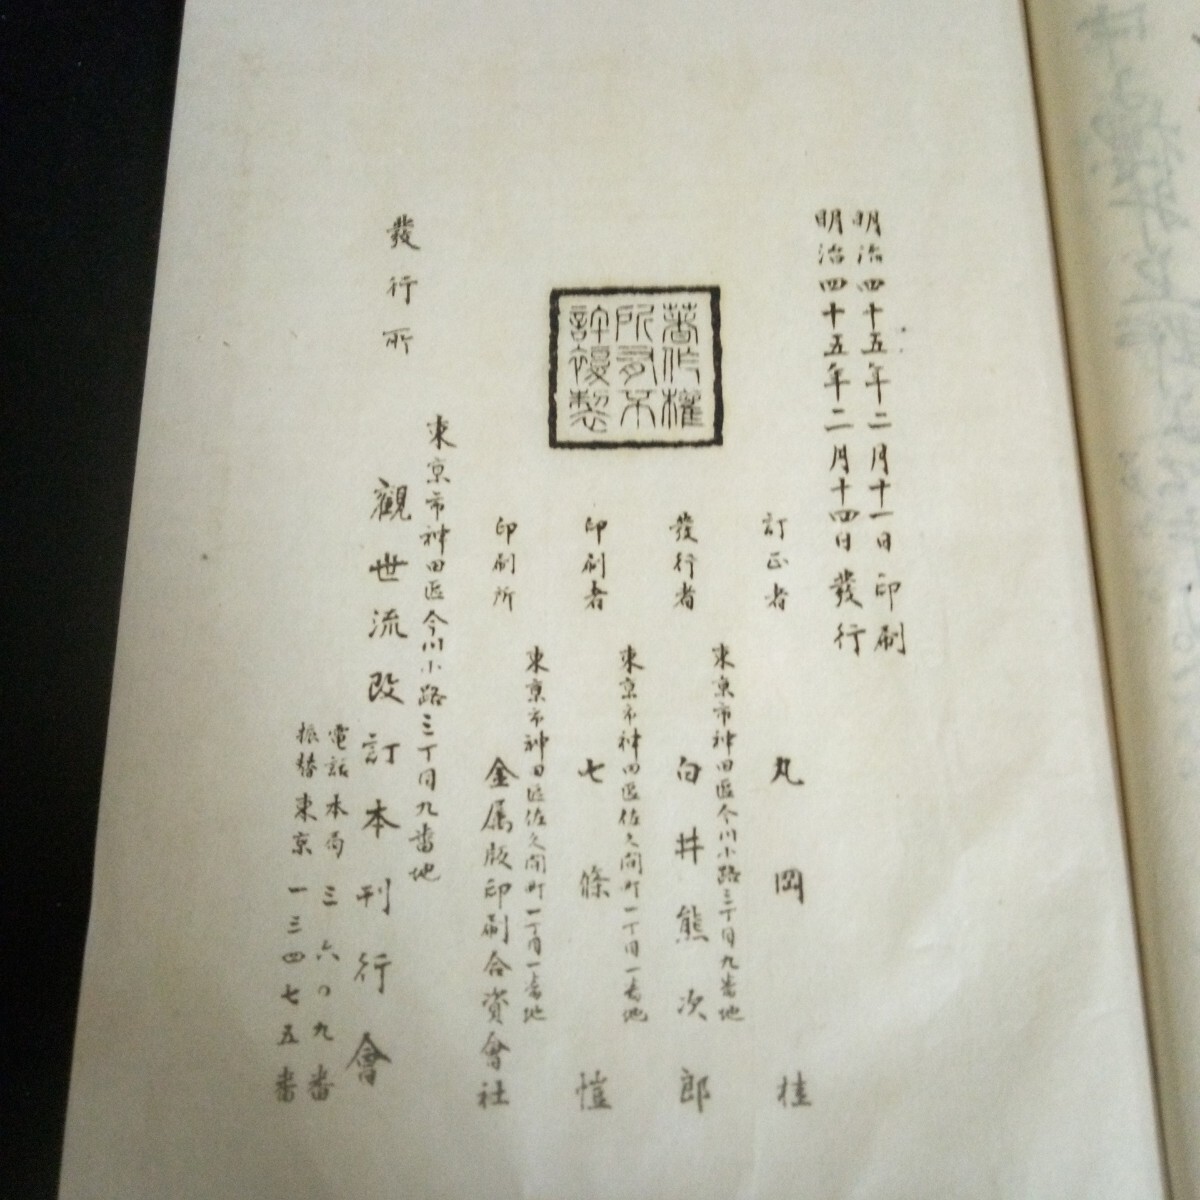 明治四十五年二月十一日印刷
明治四十五年二月十四日發行
著作權
所有不
許複製
訂正者
丸岡桂
發行者
東京市神田區今川小路三丁目九番地
白井熊次郎
印刷者
東京市神田區佐久間町一丁目一番地
七條愷
印刷所
東京市神田區佐久間町一丁目一番地
金属版印刷合資會社
發行所
東京市神田區今川小路三丁目九番地
觀世流改訂本刊行會
電話本局三六〇九番
振替東京一三四七五番